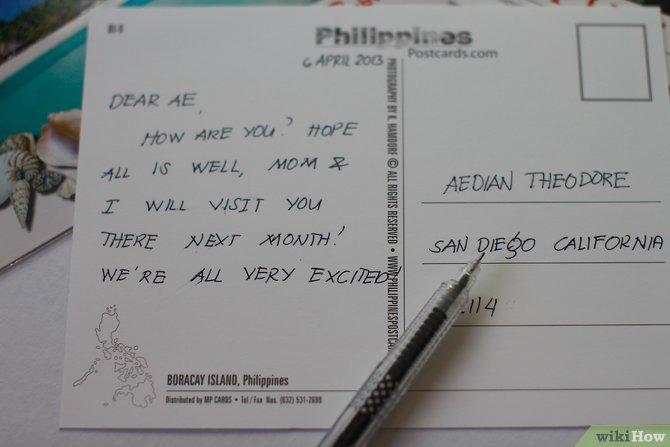 B1-1
Philippines
Postcards.com
6 APRIL 2013
DEAR AE,
HOW ARE YOU? HOPE
ALL IS WELL, MOM &
I WILL VISIT YOU
THERE NEXT MONTH!
WE'RE ALL VERY EXCITED!
PHOTOGRAPHY BY K. HAMDORF © ALL RIGHTS RESERVED • WWW.PHILIPPINESPOSTC
AEDIAN THEODORE
SAN DIEGO CALIFORNIA
114
BORACAY ISLAND, Philippines
Distributed by MP CARDS • Tel / Fax Nos. (632) 531-2699
wikiHow